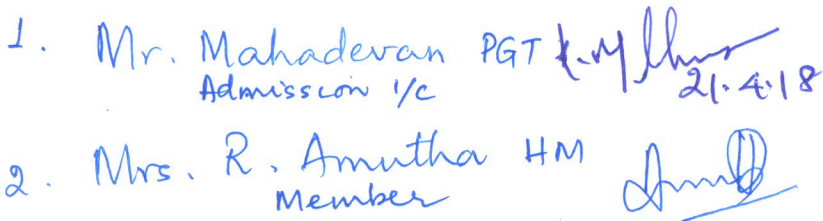 1. Mr. Mahadevan PGT
Admission i/c
21.4.18
2. Mrs. R. Amutha HM
Member